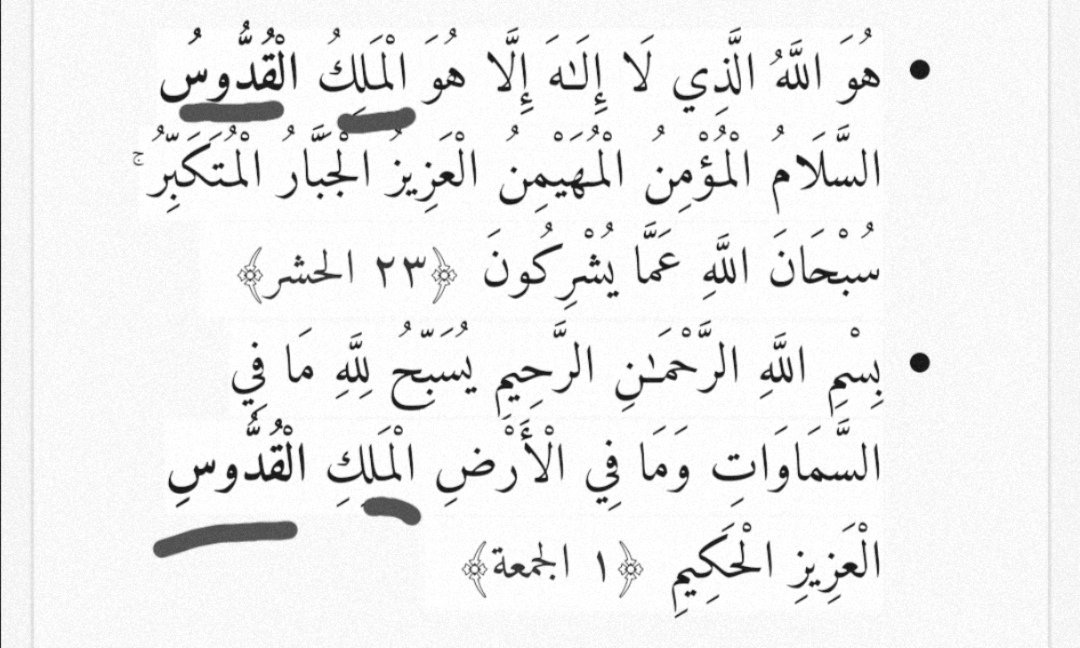 • هُوَ اللَّهُ الَّذِي لَا إِلَـٰهَ إِلَّا هُوَ الْمَلِكُ الْقُدُّوسُ
السَّلَامُ الْمُؤْمِنُ الْمُهَيْمِنُ الْعَزِيزُ الْجَبَّارُ الْمُتَكَبِّرُ ۚ
سُبْحَانَ اللَّهِ عَمَّا يُشْرِكُونَ ﴿٢٣ الحشر﴾
• بِسْمِ اللَّهِ الرَّحْمَـٰنِ الرَّحِيمِ يُسَبِّحُ لِلَّهِ مَا فِي
السَّمَاوَاتِ وَمَا فِي الْأَرْضِ الْمَلِكِ الْقُدُّوسِ
الْعَزِيزِ الْحَكِيمِ ﴿١ الجمعة﴾